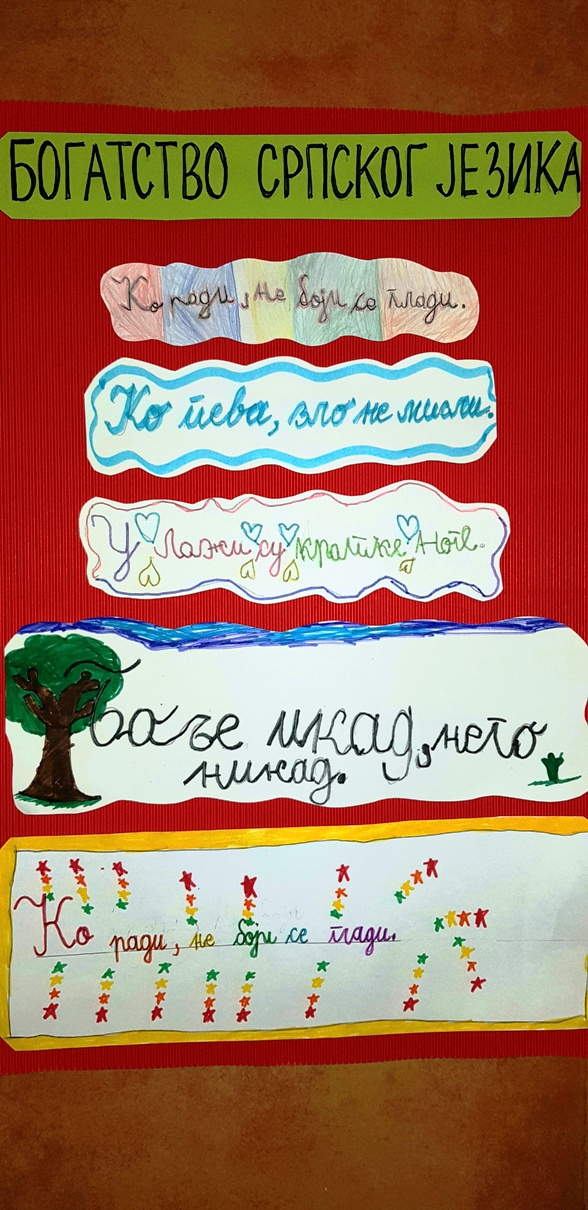 БОГАТСТВО СРПСКОГ ЈЕЗИКА
Ко ради, не боји се глади.
Ко пева, зло не мисли.
У лажи су кратке ноге.
Боље икад, него
никад.
Ко ради, не боји се глади.